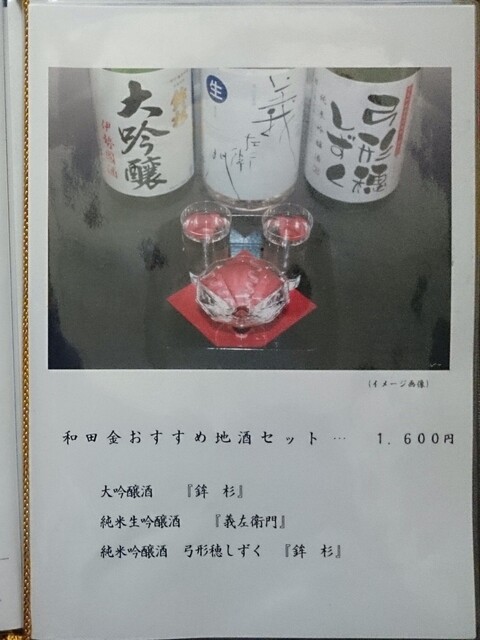 大吟醸
伊勢の酒
生
義左衛門
弓形穂
しずく
純米吟醸酒
(イメージ画像)
和田金おすすめ地酒セット… 1,600円
大吟醸酒 『鉾 杉』
純米生吟醸酒 『義左衛門』
純米吟醸酒 弓形穂しずく 『鉾 杉』